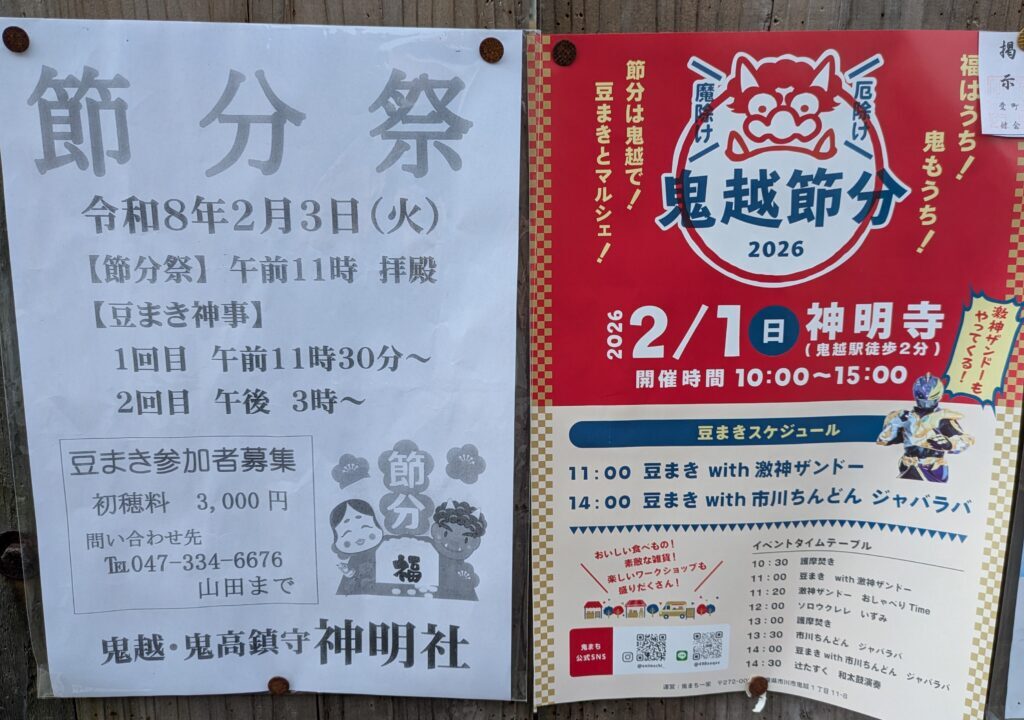 節分祭
令和8年2月3日(火)
【節分祭】 午前11時 拝殿
【豆まき神事】
1回目 午前11時30分～
2回目 午後 3時～
豆まき参加者募集
初穂料 3,000円
問い合わせ先
℡047-334-6676
山田まで
節分
福
鬼越・鬼高鎮守 神明社
福はうち！
鬼もうち！
厄除け
魔除け
節分は鬼越で！
豆まきとマルシェ！
鬼越節分
2026
2026 2/1 日 神明寺
(鬼越駅徒歩2分)
開催時間 10:00～15:00
激神ザンドーも
やってくる！
豆まきスケジュール
11:00 豆まき with 激神ザンドー
14:00 豆まき with 市川ちんどん ジャバラバ
おいしい食べもの！
素敵な雑貨！
楽しいワークショップも
盛りだくさん！
鬼まち
公式SNS
イベントタイムテーブル
10:30 護摩焚き
11:00 豆まき with 激神ザンドー
11:20 激神ザンドー おしゃべりTime
12:00 ソロウクレレ いずみ
13:00 護摩焚き
13:30 市川ちんどん ジャバラバ
14:00 豆まき with 市川ちんどん ジャバラバ
14:30 辻たすく 和太鼓演奏
掲示